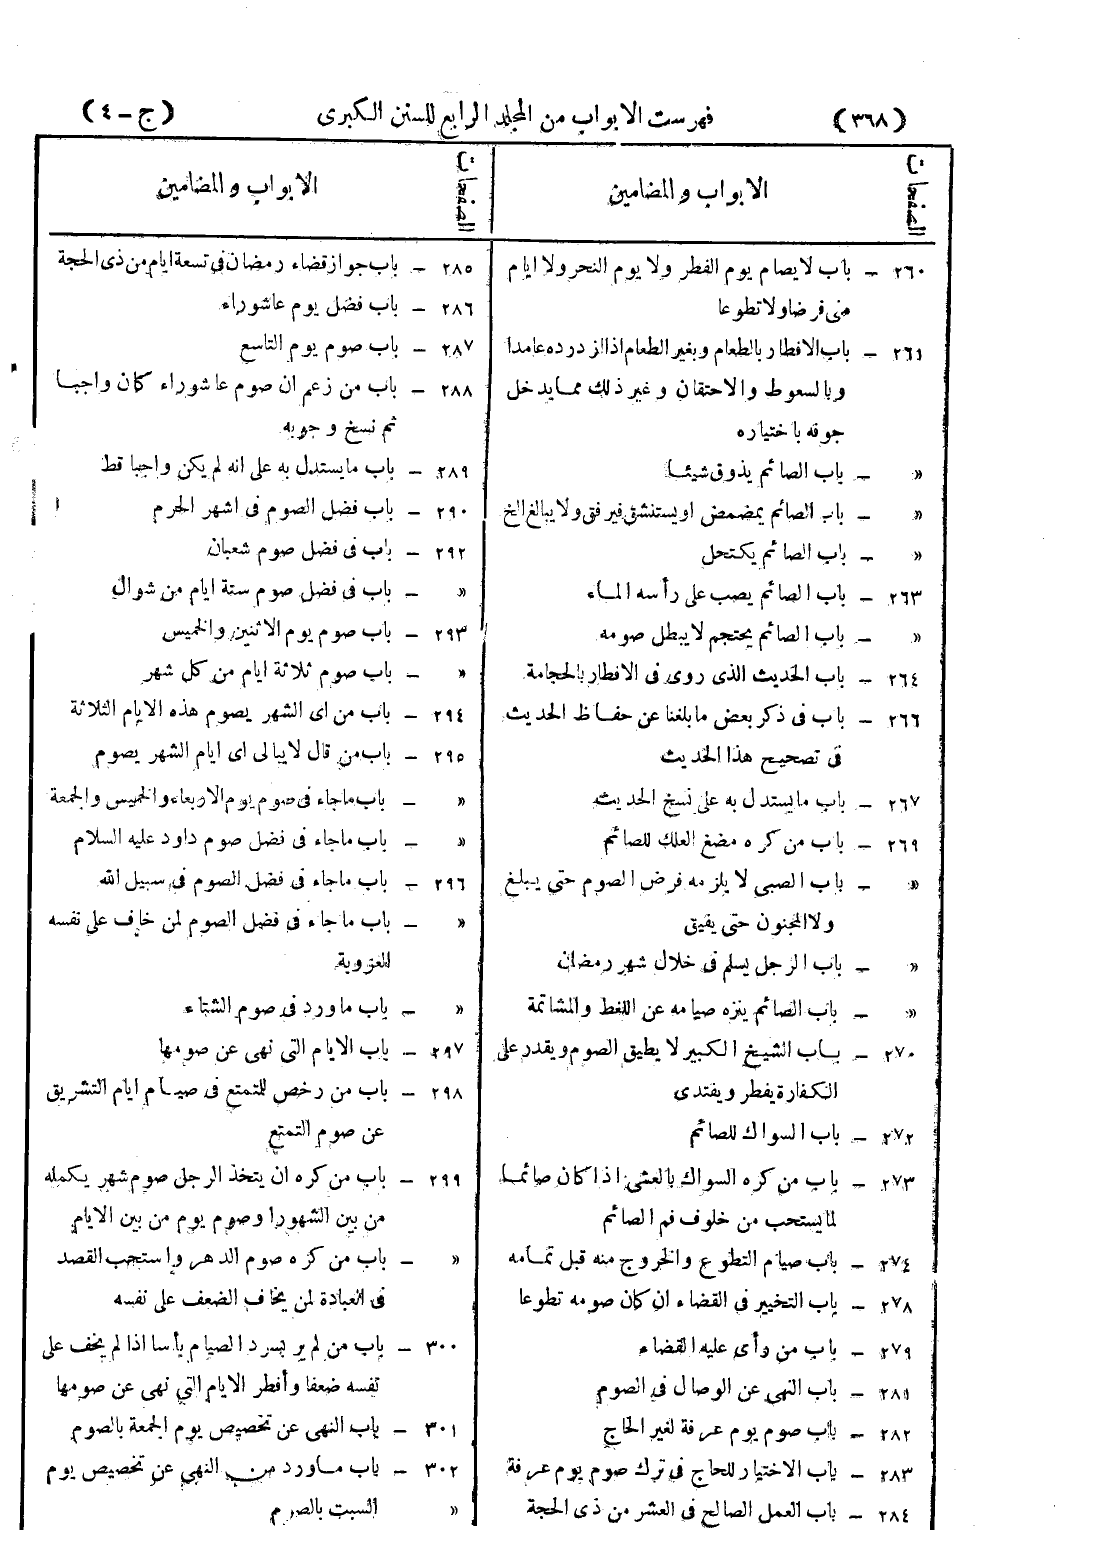 (٣٦٨) فهرست الابواب من المجلد الرابع للسنن الكبرى (ج - ٤)
الصفحات الابواب والمضامين
٢٦٠ - باب لا يصام يوم الفطر ولا يوم النحر ولا ايام
منى فرضا ولا تطوعا
٢٦١ - باب الافطار بالطعام وبغير الطعام اذا ازدرده عامدا
وبالسعوط والاحتقان وغير ذلك مما يدخل
جوفه باختياره
» - باب الصائم يذوق شيئا
» - باب الصائم يمضمض او يستنشق فيرفق ولا يبالغ الخ
» - باب الصائم يكتحل
٢٦٣ - باب الصائم يصب على رأسه الماء
» - باب الصائم يحتجم لا يبطل صومه
٢٦٤ - باب الحديث الذى روى فى الافطار بالحجامة
٢٦٦ - باب فى ذكر بعض ما بلغنا عن حفاظ الحديث
فى تصحيح هذا الحديث
٢٦٧ - باب ما يستدل به على نسخ الحديث
٢٦٩ - باب من كره مضغ العلك للصائم
» - باب الصبى لا يلزمه فرض الصوم حتى يبلغ
ولا المجنون حتى يفيق
» - باب الرجل يسلم فى خلال شهر رمضان
» - باب الصائم ينزه صيامه عن اللغط والمشاتمة
٢٧٠ - باب الشيخ الكبير لا يطيق الصوم ويقدر على
الكفارة يفطر ويفتدى
٢٧٢ - باب السواك للصائم
٢٧٣ - باب من كره السواك بالعشى اذا كان صائما
لما يستحب من خلوف فم الصائم
٢٧٤ - باب صيام التطوع والخروج منه قبل تمامه
٢٧٨ - باب التخيير فى القضاء ان كان صومه تطوعا
٢٧٩ - باب من رأى عليه القضاء
٢٨١ - باب النهى عن الوصال فى الصوم
٢٨٢ - باب صوم يوم عرفة لغير الحاج
٢٨٣ - باب الاختيار للحاج فى ترك صوم يوم عرفة
٢٨٤ - باب العمل الصالح فى العشر من ذى الحجة
الصفحات الابواب والمضامين
٢٨٥ - باب جواز قضاء رمضان فى تسعة ايام من ذى الحجة
٢٨٦ - باب فضل يوم عاشوراء
٢٨٧ - باب صوم يوم التاسع
٢٨٨ - باب من زعم ان صوم عاشوراء كان واجبا
ثم نسخ وجوبه
٢٨٩ - باب ما يستدل به على انه لم يكن واجبا قط
٢٩٠ - باب فضل الصوم فى اشهر الحرم
٢٩٢ - باب فى فضل صوم شعبان
» - باب فى فضل صوم ستة ايام من شوال
٢٩٣ - باب صوم يوم الاثنين والخميس
» - باب صوم ثلاثة ايام من كل شهر
٢٩٤ - باب من اى الشهر يصوم هذه الايام الثلاثة
٢٩٥ - باب من قال لا يبالى اى ايام الشهر يصوم
» - باب ماجاء فى صوم يوم الاربعاء والخميس والجمعة
» - باب ماجاء فى فضل صوم داود عليه السلام
٢٩٦ - باب ماجاء فى فضل الصوم فى سبيل الله
» - باب ماجاء فى فضل الصوم لمن خاف على نفسه
العزوبة
» - باب ما ورد فى صوم الشتاء
٢٩٧ - باب الايام التى نهى عن صومها
٢٩٨ - باب من رخص للتمتع فى صيام ايام التشريق
عن صوم التمتع
٢٩٩ - باب من كره ان يتخذ الرجل صوم شهر يكمله
من بين الشهور او صوم يوم من بين الايام
» - باب من كره صوم الدهر واستحب القصد
فى العبادة لمن يخاف الضعف على نفسه
٣٠٠ - باب من لم ير بسرد الصيام بأسا اذا لم يخف على
نفسه ضعفا وأفطر الايام التى نهى عن صومها
٣٠١ - باب النهى عن تخصيص يوم الجمعة بالصوم
٣٠٢ - باب ماورد من النهى عن تخصيص يوم
» السبت بالصوم